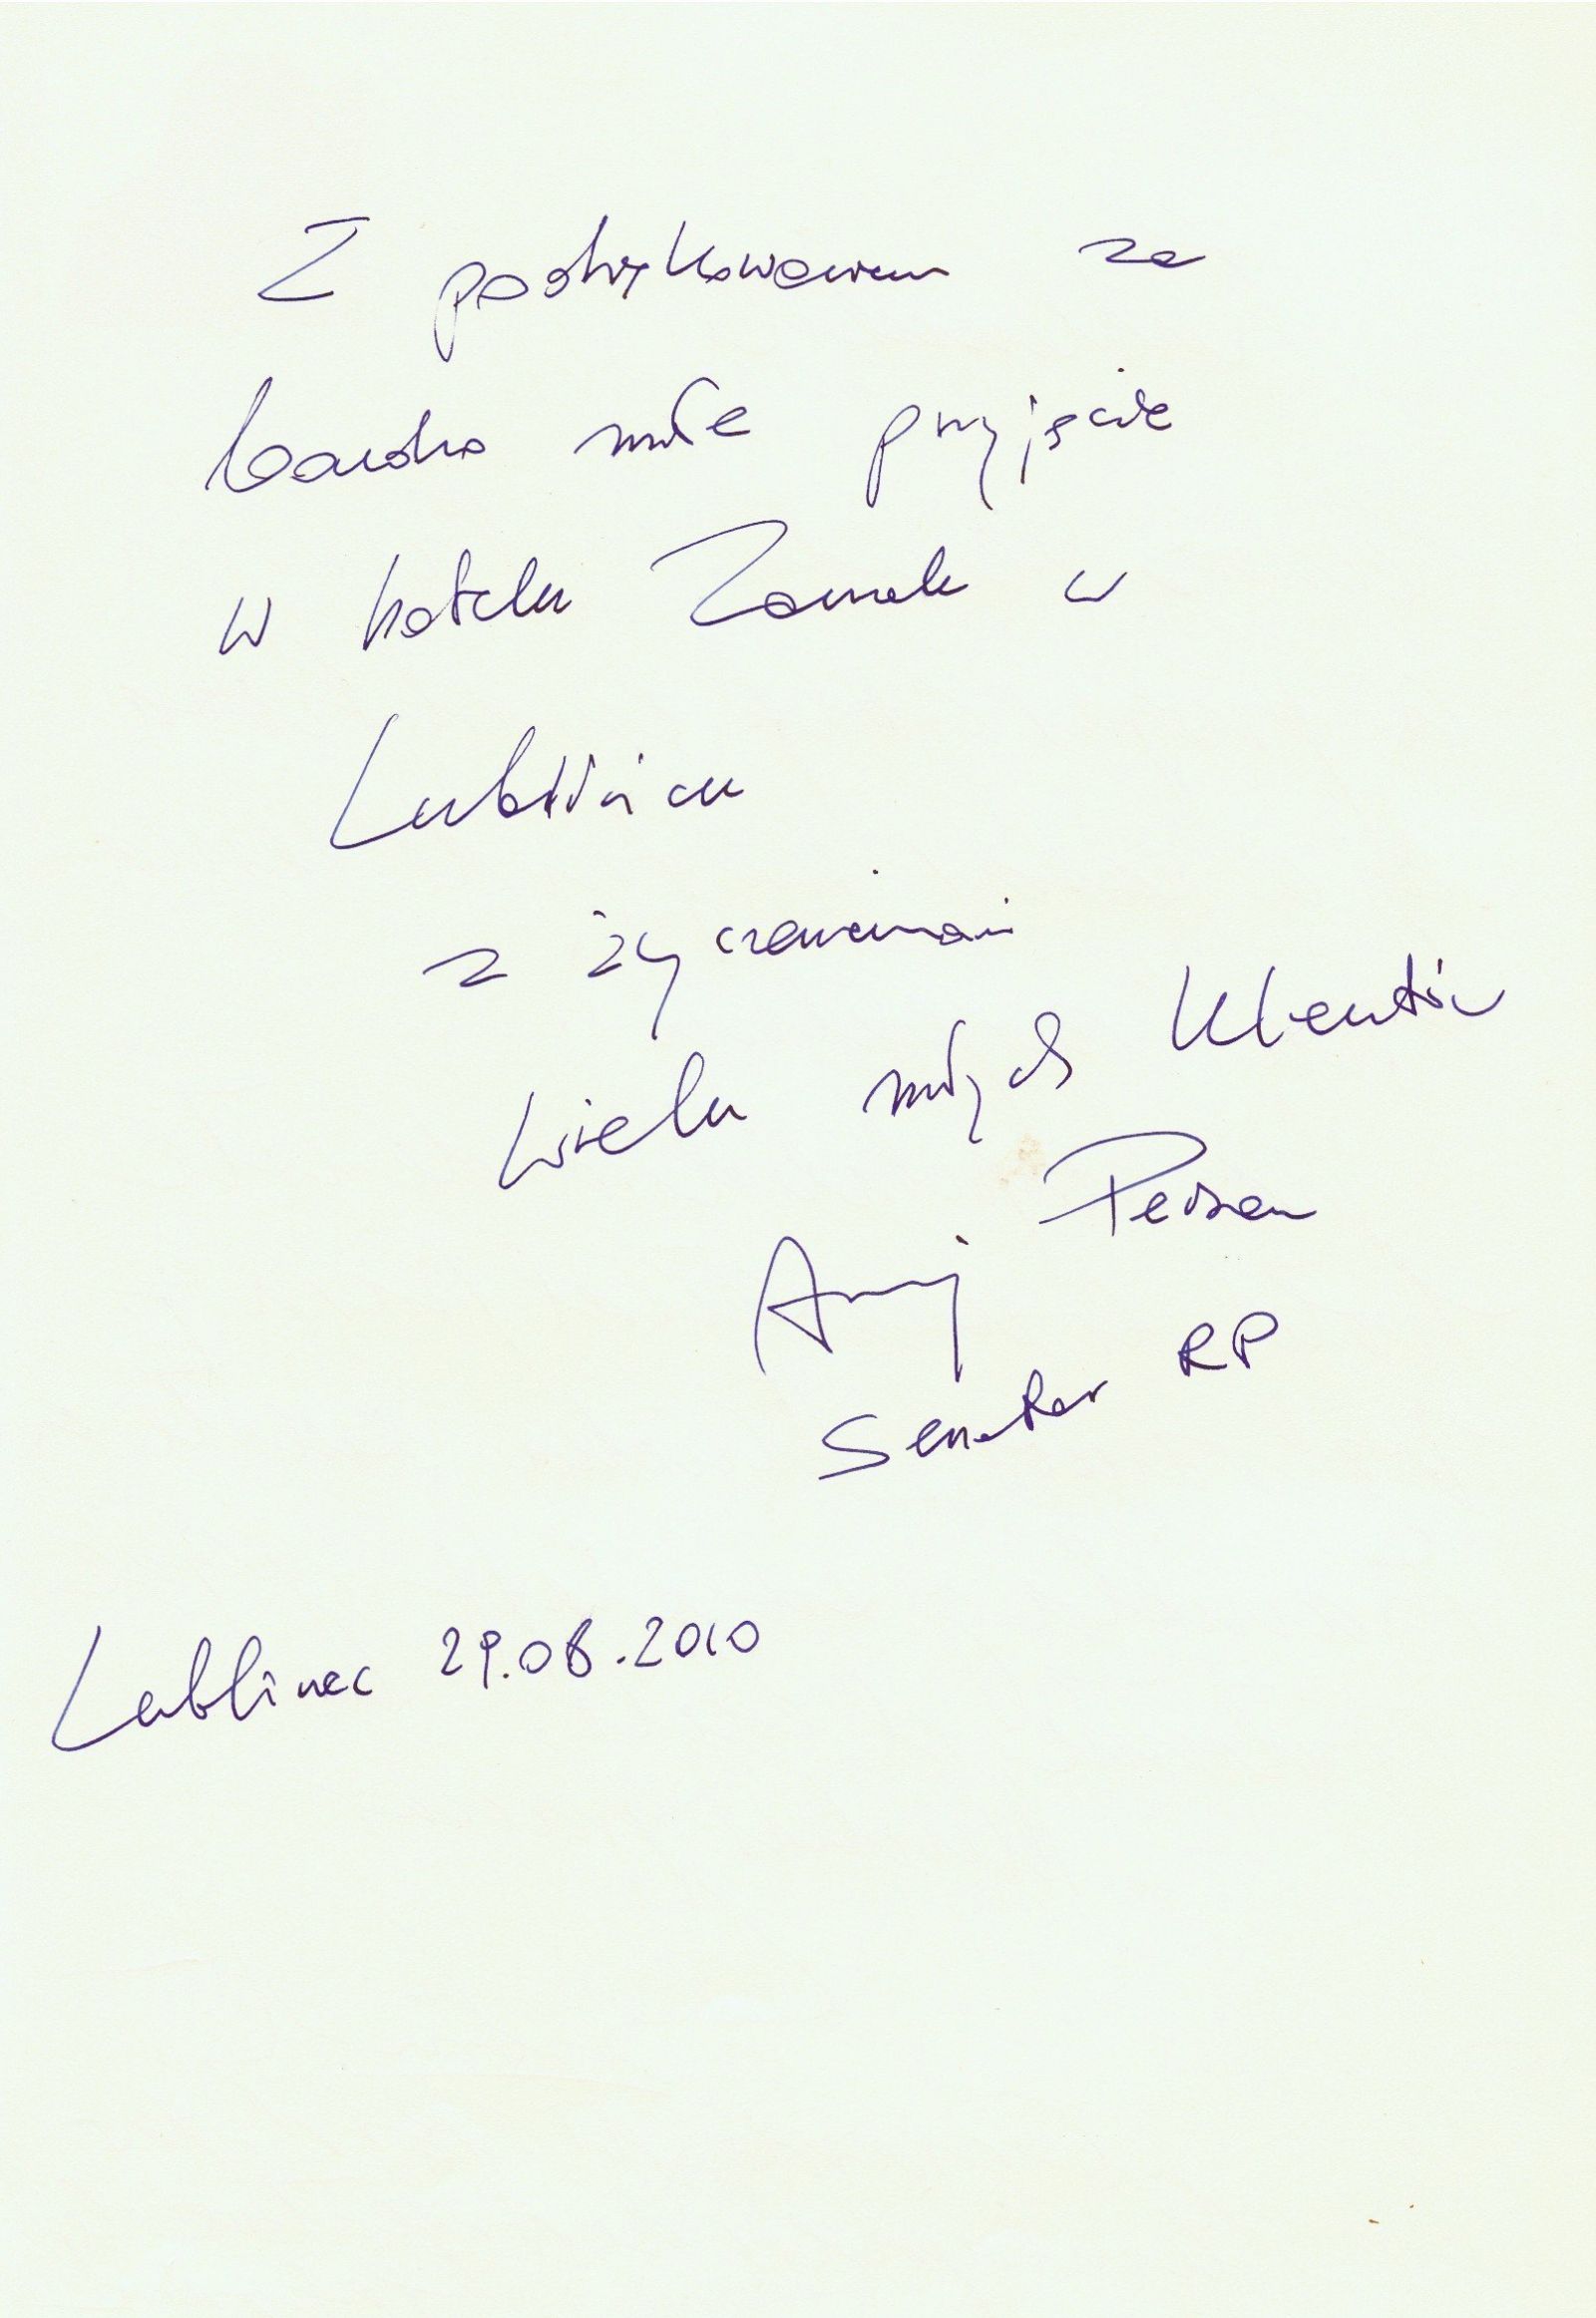 Z podziękowaniem za
bardzo miłe przyjęcie
w hotelu Zamek w
Lublińcu
z życzeniami
wielu miłych klientów
Andrzej Person
Senator RP
Lubliniec 29.08.2010